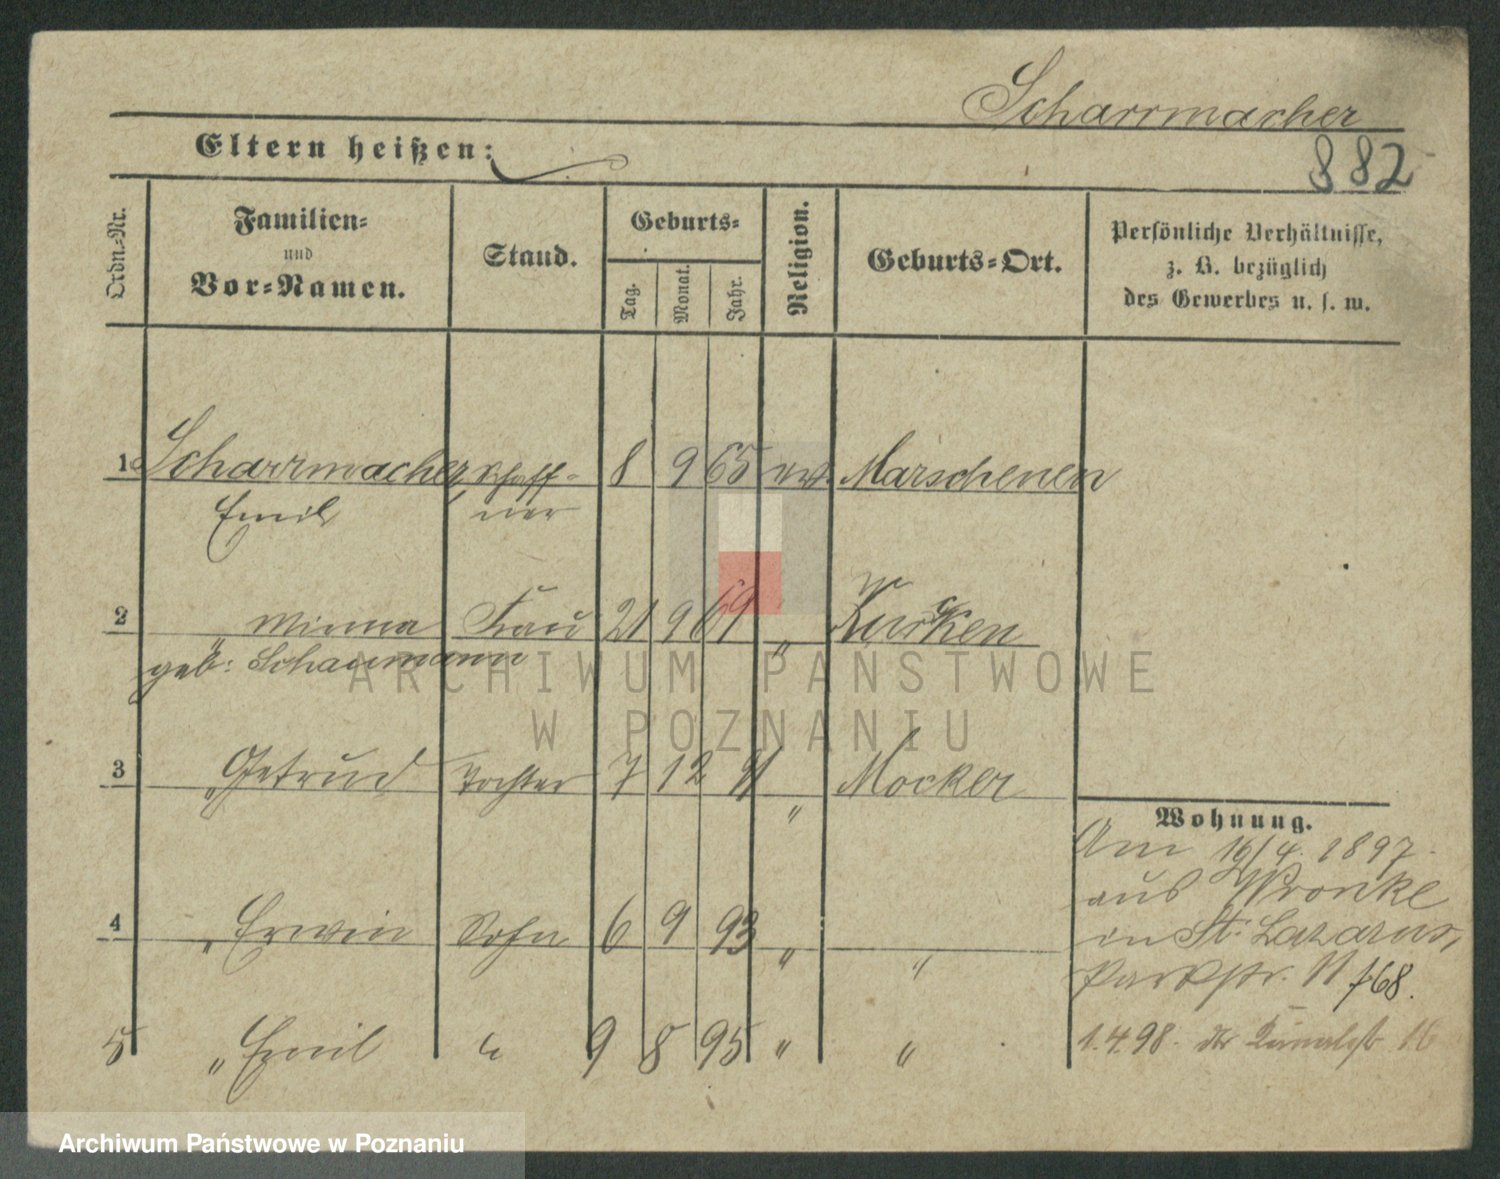 Scharrmacher
882
Eltern heißen:
Ordn.-Nr.
Familien-
und
Vor-Namen.
Stand.
Geburts-
Tag.
Monat.
Jahr.
Religion.
Geburts-Ort.
Persönliche Verhältnisse,
z. B. bezüglich
des Gewerbes u. s. w.
1 Scharrmacher, Schaff- 8 9 65 ev. Marschenen
Emil ner
2 " Minna Frau 21 9 69 "
geb: Schaumann
3 " Getrud Tochter 7 12 91 " Mocker
4 " Erwin Sohn 6 9 93 " "
5 " Emil " 9 8 95 " "
Wohnung.
Am 16/4. 1897.
aus Wronke
in St. Lazarus,
Parkstr. 11 f68.
1.4.98. 16
ARCHIWUM PAŃSTWOWE
W POZNANIU
Archiwum Państwowe w Poznaniu